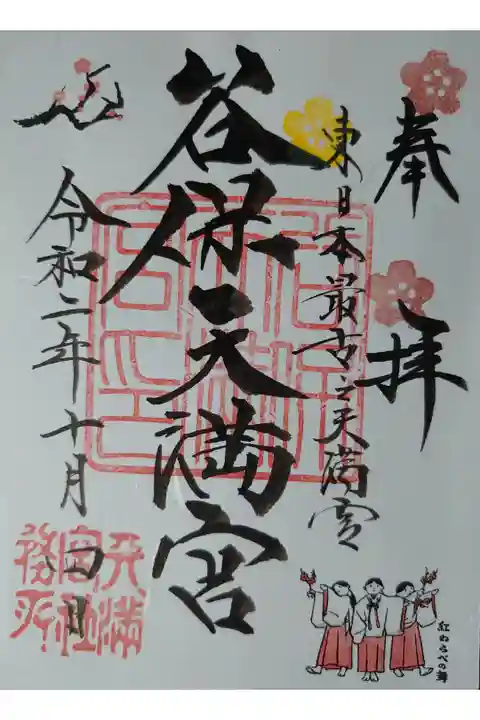 奉拝
東日本最古之天満宮
谷保天満宮
令和二年十月四日
紅わらべの舞
天満宮社務所